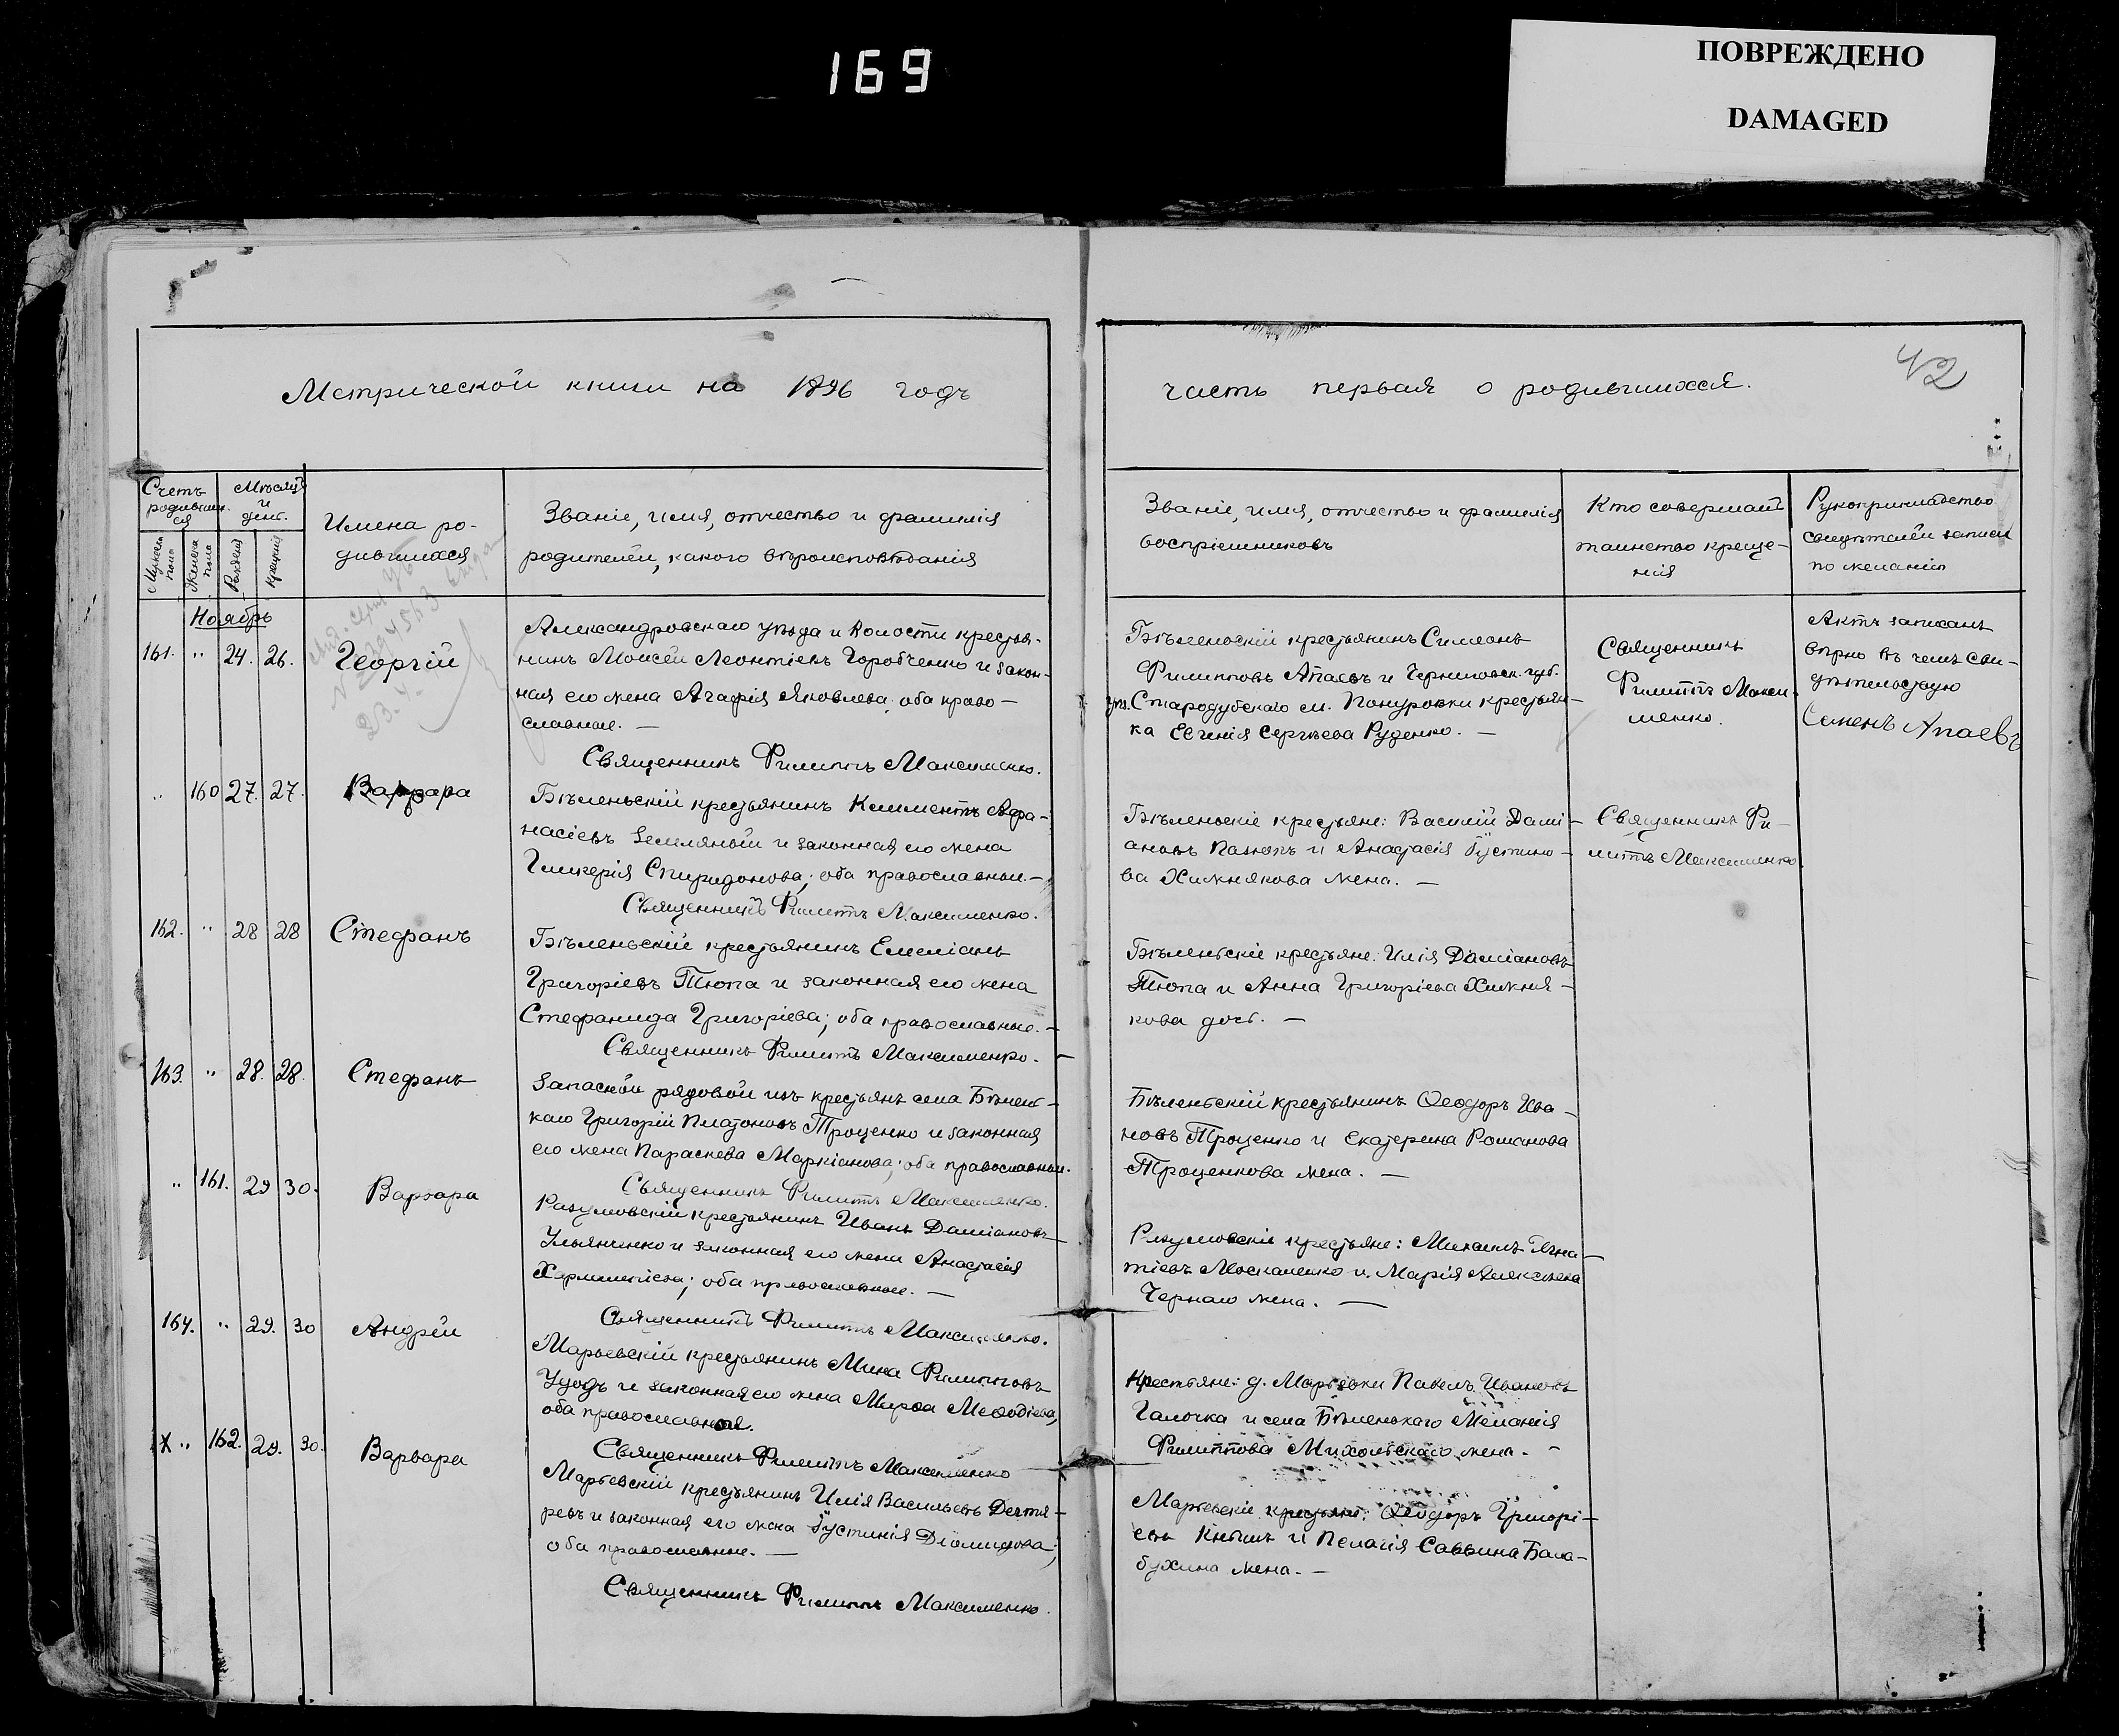 169
ПОВРЕЖДЕНО
DAMAGED
Метрической книги на 1896 годъ
часть первая о родившихся.
42
Счетъ родившихся
Мѣсяцъ и день.
Мужеска пола
Женска пола
Рожденія
Крещенія
Имена родившихся
Званіе, имя, отчество и фамилія
родителей, какого вѣроисповѣданія
Званіе, имя, отчество и фамилія
воспріемниковъ
Кто совершалъ
таинство креще-
нія
Рукоприкладство
свидѣтелей записи
по желанію
Ноябрь
161. " 24. 26. Георгій
Александровскаго уѣзда и волости крестья-
нинъ Моисей Леонтіевъ Горобченко и закон-
ная его жена Агафія Яковлева; оба право-
славные. —
Священникъ Филиппъ Максименко.
Бѣленьскій крестьянинъ Симеонъ
Филипповъ Апаевъ и Черниговск. губ.
уѣ. Стародубскаго м. Понуровки крестьян-
ка Евгенія Сергѣева Руденко. —
Священникъ
Филиппъ Макси-
менко.
Актъ записанъ
вѣрно въ чемъ сви-
дѣтельствую
Семенъ Апаевъ
" 160 27. 27. Варвара
Бѣленьскій крестьянинъ Климентъ Афа-
насіевъ Земляной и законная его жена
Гликерія Спиридонова; оба православные. —
Священникъ Филиппъ Максименко.
Бѣленьскіе крестьяне: Василій Дамі-
ановъ Палюхъ и Анастасія Іустино-
ва Хижнякова жена. —
Священникъ Фи-
липпъ Максименко.
162. " 28 28 Стефанъ
Бѣленьскій крестьянинъ Емеліанъ
Григоріевъ Тюпа и законная его жена
Стефанида Григоріева; оба православные. —
Священникъ Филиппъ Максименко. —
Бѣленьскіе крестьяне: Илія Даміановъ
Тюпа и Анна Григоріева Хижня-
кова доч. —
163. " 28. 28. Стефанъ
Запасной рядовой изъ крестьянъ села Бѣлень-
каго Григорій Платоновъ Троценко и законная
его жена Параскева Маркіанова; оба православные.
Священникъ Филиппъ Максименко.
Бѣленьскій крестьянинъ Ѳеодоръ Ива-
новъ Троценко и Екатерина Романова
Троценкова жена. —
" 161. 29 30. Варвара
Разумовскій крестьянинъ Иванъ Даміановъ
Ульянченко и законная его жена Анастасія
Харлампіева; оба православные. —
Священникъ Филиппъ Максименко.
Разумовскіе крестьяне: Михаилъ Игна-
тіевъ Москаленко и Марія Алексѣева
Чернаго жена. —
164. " 29. 30 Андрей
Марьевскій крестьянинъ Мина Филипповъ
Удодъ и законная его жена Марѳа Меѳодіева,
оба православныя.
Священникъ Филиппъ Максименко
Крестьяне: д. Марьевки Павелъ Ивановъ
Галочка и села Бѣленькаго Меланія
Филиппова Михольскаго жена. —
х " 162. 29. 30. Варвара
Марьевскій крестьянинъ Илія Васильевъ Дегтя-
ревъ и законная его жена Іустинія Діомидова;
оба православные. —
Священникъ Филиппъ Максименко.
Марьевскіе крестьяне: Ѳеодоръ Григорі-
евъ Кнышъ и Пелагія Саввина Бала-
бухина жена. —